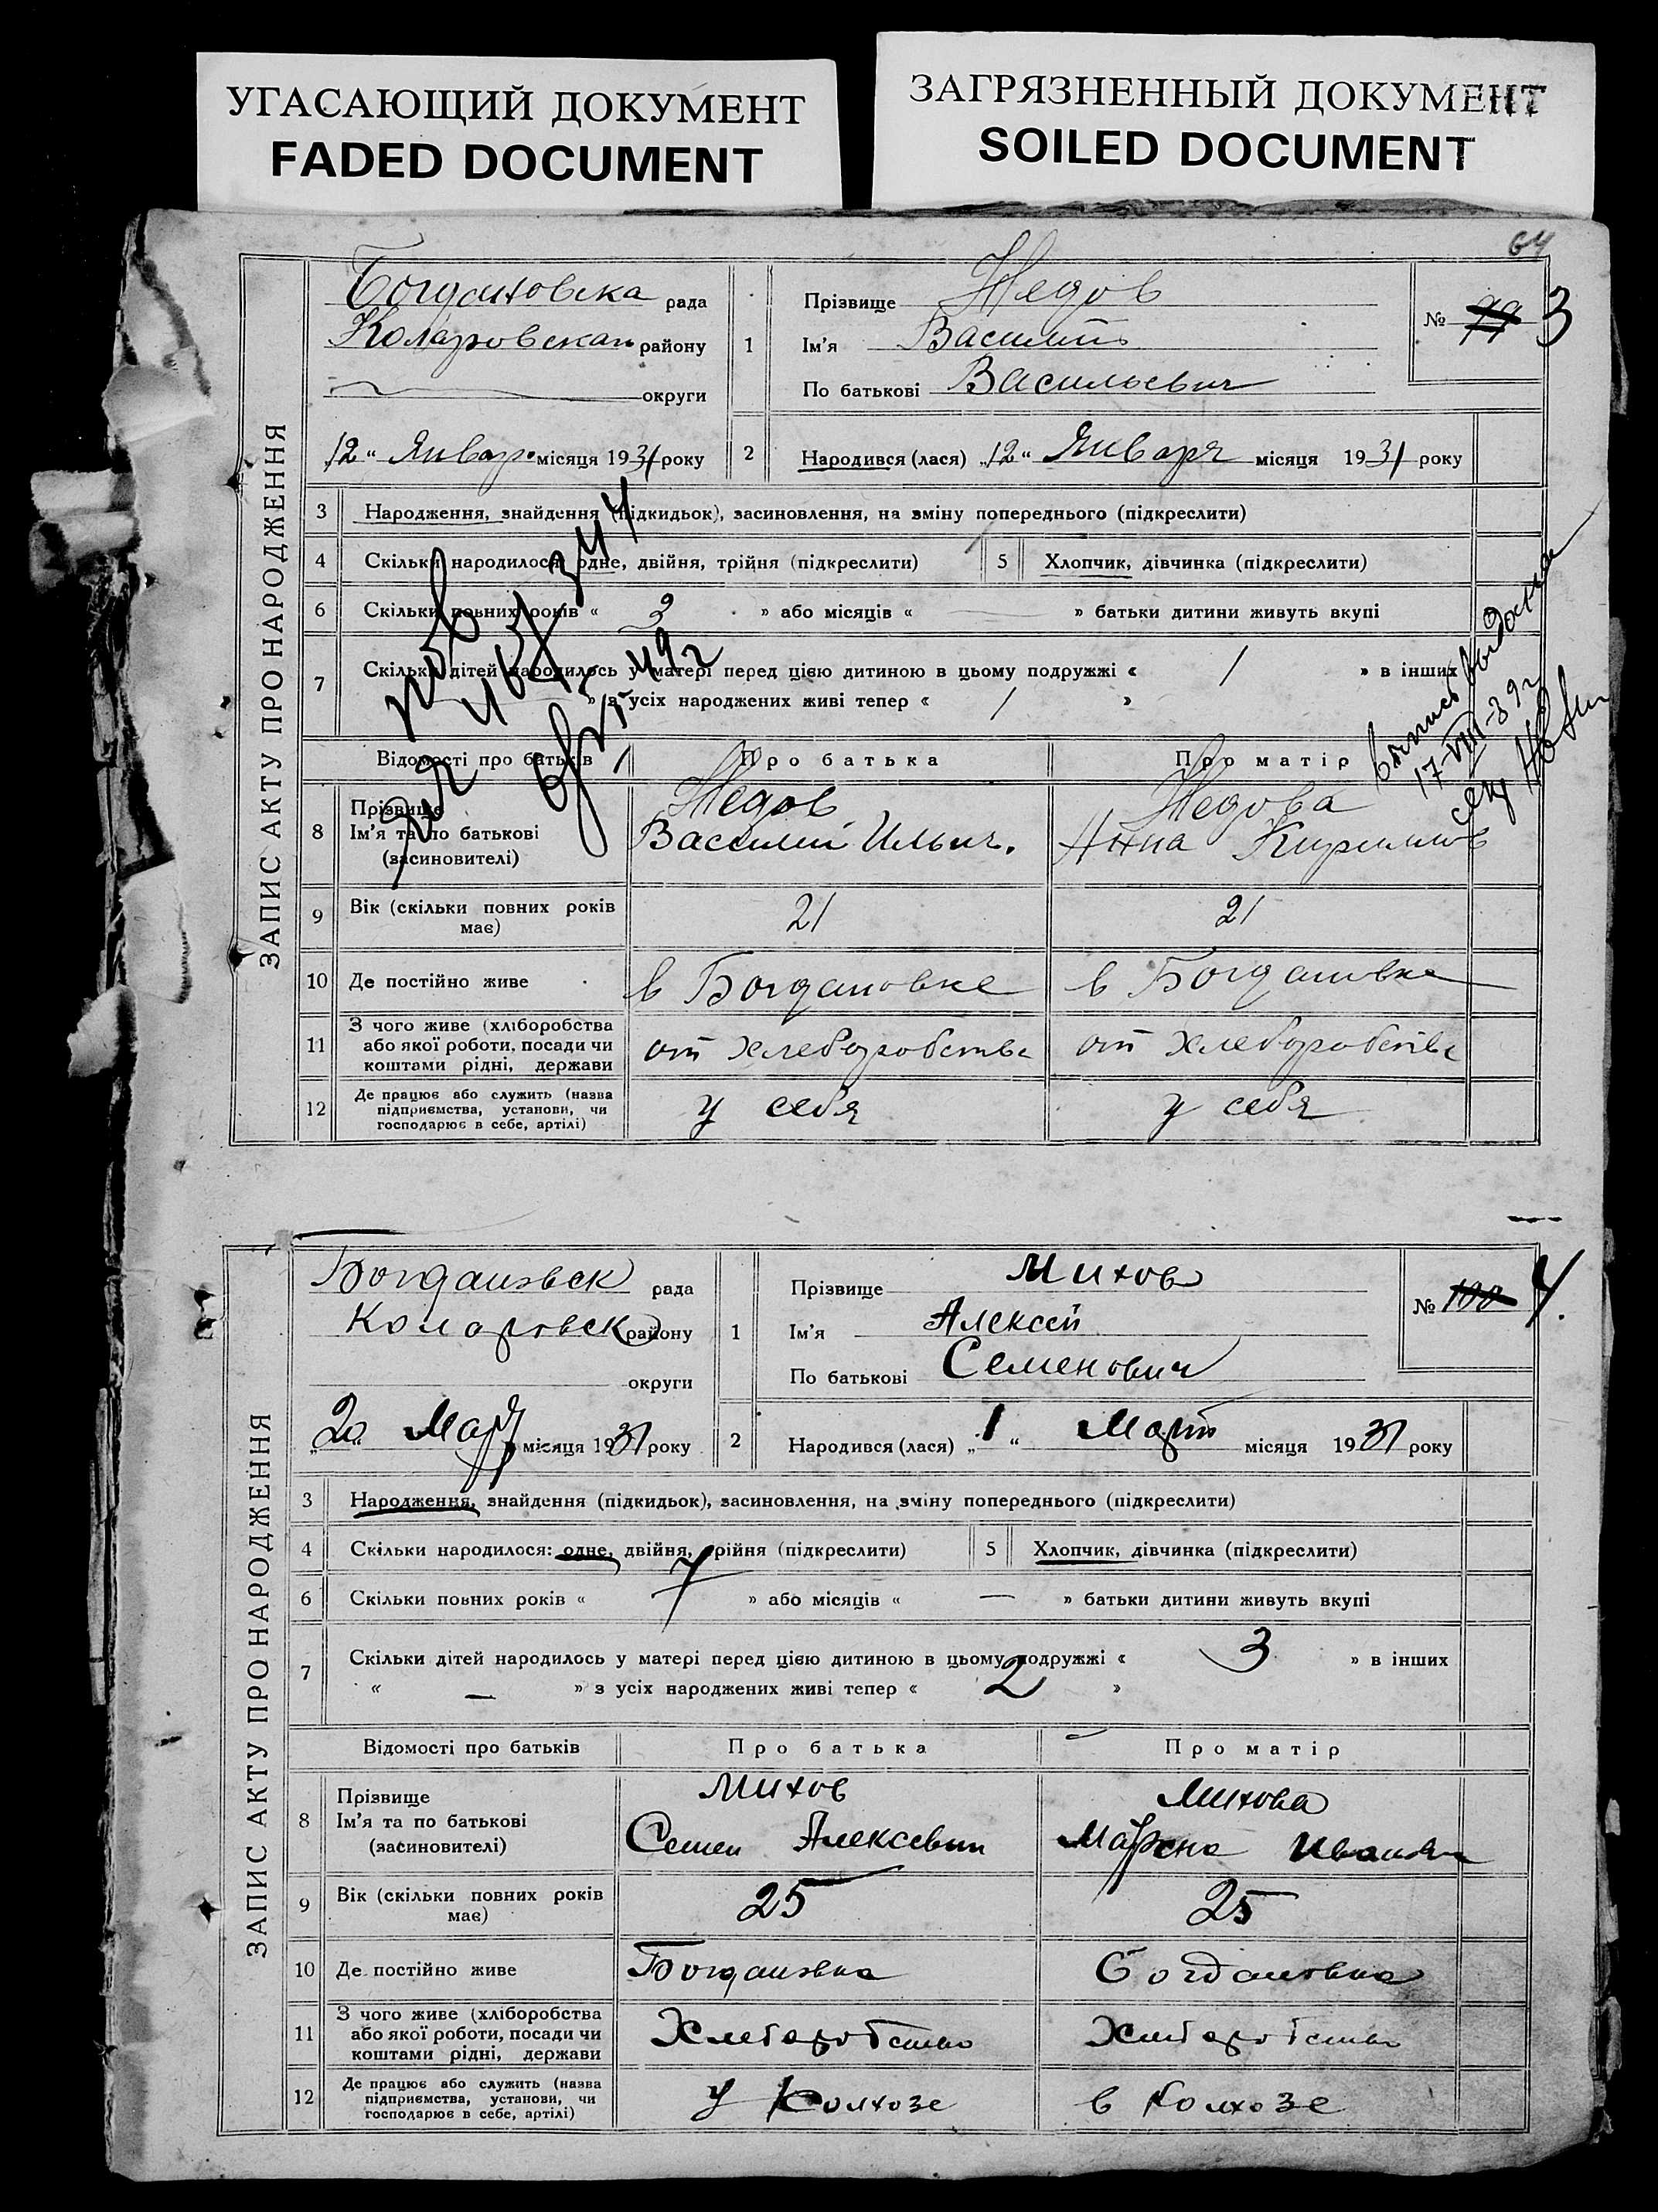 УГАСАЮЩИЙ ДОКУМЕНТ
FADED DOCUMENT
ЗАГРЯЗНЕННЫЙ ДОКУМЕНТ
SOILED DOCUMENT
64
ЗАПИС АКТУ ПРО НАРОДЖЕННЯ
Богдановска рада
Коларовскаг району
округи
„12“ Январ місяця 1931 року
1
Прізвище Недов
Ім'я Василий
По батькові Васильевич
№ 99 3
2 Народився (лася) „12“ Января місяця 1931 року
3 Народження, знайдення (підкидьок), засиновлення, на зміну попереднього (підкреслити)
4 Скільки народилося: одне, двійня, трійня (підкреслити) 5 Хлопчик, дівчинка (підкреслити)
6 Скільки повних років « 2 » або місяців « — » батьки дитини живуть вкупі
7 Скільки дітей народилось у матері перед цією дитиною в цьому подружжі « 1 » в інших
» з усіх народжених живі тепер « 1 »
выпись выдана
17-VIII-39г
Відомості про батьків Про батька Про матір
8 Прізвище Недов Недова
Ім'я та по батькові Василий Ильич. Анна Кириллов
(засиновителі)
9 Вік (скільки повних років має) 21 21
10 Де постійно живе в Богдановке в Богдановке
11 З чого живе (хліборобства
або якої роботи, посади чи от Хлеборобства от Хлеборобства
коштами рідні, держави
12 Де працює або служить (назва
підприємства, установи, чи у себя у себя
господарює в себе, артілі)
ЗАПИС АКТУ ПРО НАРОДЖЕННЯ
Богдановск рада
Коларовск району
округи
„20“ Мар місяця 1931 року
1
Прізвище Михов
Ім'я Алексей
По батькові Семенович
№ 100 4.
2 Народився (лася) „1“ Март місяця 1931 року
3 Народження, знайдення (підкидьок), засиновлення, на зміну попереднього (підкреслити)
4 Скільки народилося: одне, двійня, трійня (підкреслити) 5 Хлопчик, дівчинка (підкреслити)
6 Скільки повних років « 7 » або місяців « — » батьки дитини живуть вкупі
7 Скільки дітей народилось у матері перед цією дитиною в цьому подружжі « 3 » в інших
« — » з усіх народжених живі тепер « 2 »
Відомості про батьків Про батька Про матір
8 Прізвище Михов Михова
Ім'я та по батькові Семен Алексевич
(засиновителі)
9 Вік (скільки повних років має) 25 25
10 Де постійно живе Богдановка Богдановка
11 З чого живе (хліборобства
або якої роботи, посади чи Хлеборобство Хлеборобство
коштами рідні, держави
12 Де працює або служить (назва
підприємства, установи, чи у Колхозе в Колхозе
господарює в себе, артілі)